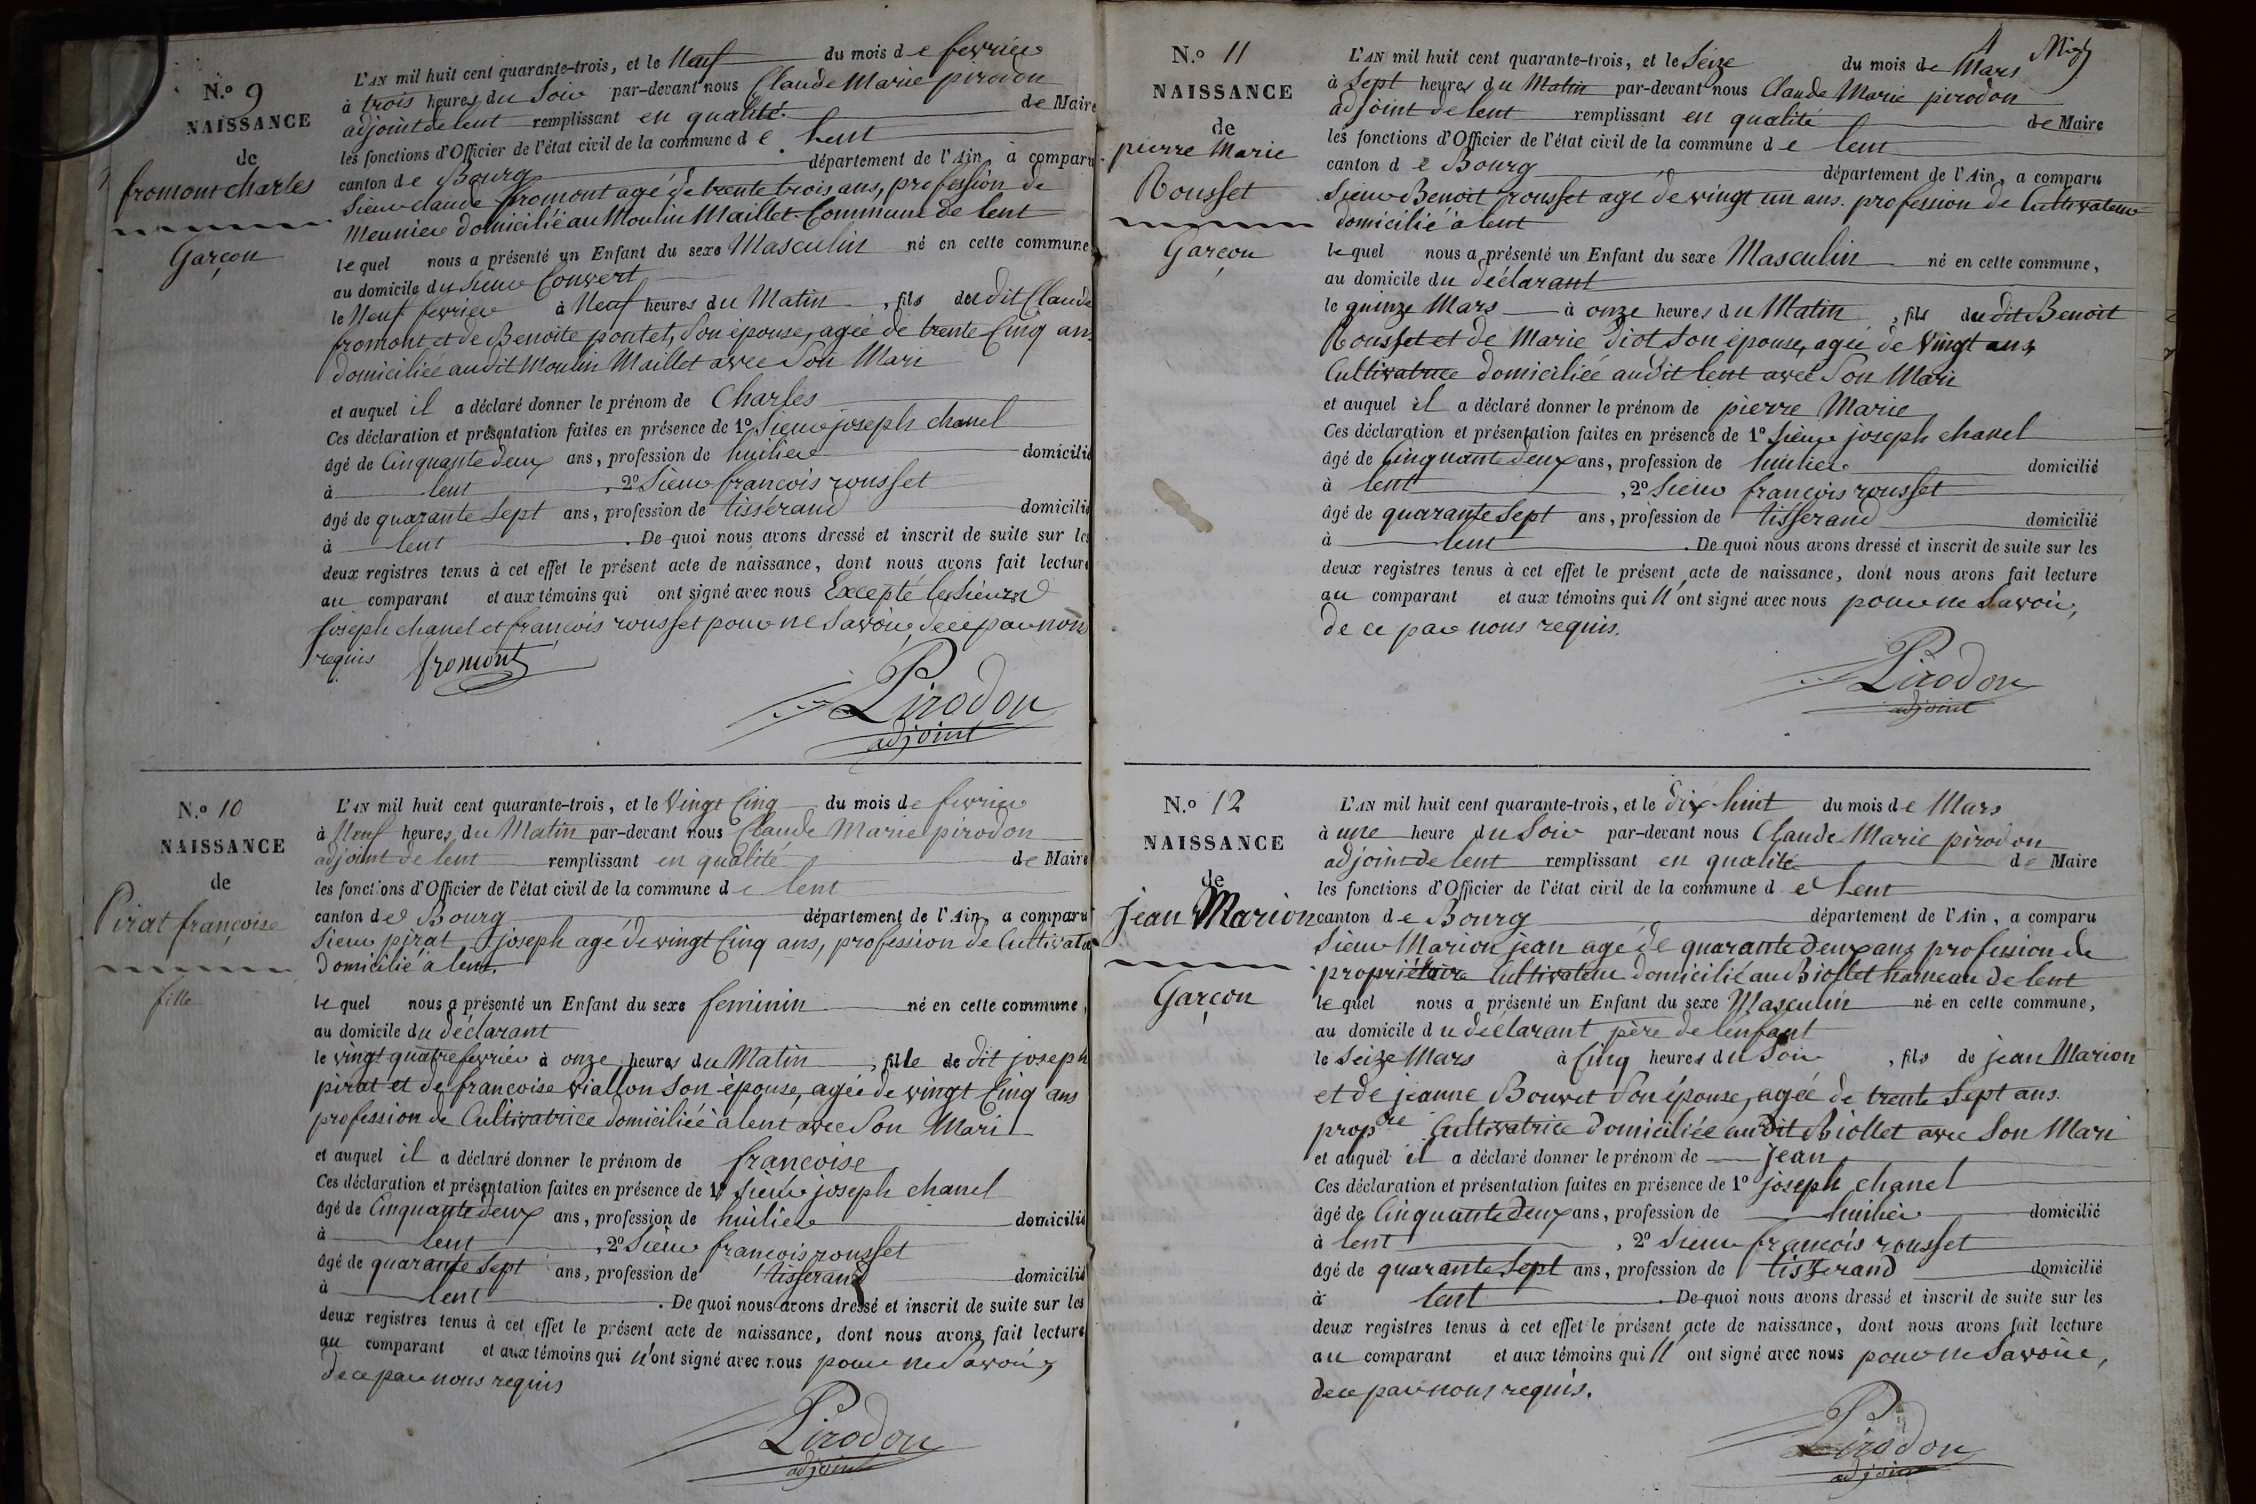 N.o 9
NAISSANCE
de
fromont charles
Garçon
L'AN mil huit cent quarante-trois, et le Neuf du mois de fevrier
à trois heures du Soir par-devant nous Claude Marie pirodon
adjoint de lent remplissant en qualité de Maire
les fonctions d'Officier de l'état civil de la commune de Lent
canton de Bourg département de l'Ain, a comparu
Sieur claude fromont agé de trente trois ans, profession de
Meunier domicilié au Moulin Maillet Commune de lent
lequel nous a présenté un Enfant du sexe Masculin né en cette commune
au domicile du Sieur Convert
le Neuf fevrier à Neuf heures du Matin, fils du dit Claude
fromont et de Benoite pontet, Son épouse, agée de trente Cinq ans
domiciliée audit Moulin Maillet avec Son Mari
et auquel il a déclaré donner le prénom de Charles
Ces déclaration et présentation faites en présence de 1o Sieur joseph chanel
âgé de Cinquante deux ans, profession de huilier domicilié
à lent, 2o Sieur francois rousset
âgé de quarante Sept ans, profession de tisserand domicilié
à lent. De quoi nous avons dressé et inscrit de suite sur les
deux registres tenus à cet effet le présent acte de naissance, dont nous avons fait lecture
au comparant et aux témoins qui ont signé avec nous Excepté les Sieurs
Joseph chanel et françois rousset pour ne Savoir, de ce par nous
requis fromont
Pirodon
adjoint
N.o 10
NAISSANCE
de
Pirat françoise
fille
L'AN mil huit cent quarante-trois, et le Vingt Cinq du mois de fevrier
à Neuf heures du Matin par-devant nous Claude Marie pirodon
adjoint de lent remplissant en qualité de Maire
les fonctions d'Officier de l'état civil de la commune de lent
canton de Bourg département de l'Ain, a comparu
Sieur pirat joseph agé de vingt Cinq ans, profession de Cultivateur
Domicilié à lent.
lequel nous a présenté un Enfant du sexe feminin né en cette commune,
au domicile du déclarant
le vingt quatre fevrier à onze heures du Matin, fille de dit joseph
pirat et de francoise viallon Son épouse, agée de vingt Cinq ans
profession de Cultivatrice domiciliée à lent avec Son Mari
et auquel il a déclaré donner le prénom de francoise
Ces déclaration et présentation faites en présence de 1o Sieur joseph chanel
âgé de Cinquante deux ans, profession de huilier domicilié
à lent, 2o Sieur francois rousset
âgé de quarante Sept ans, profession de tisserand domicilié
à lent. De quoi nous avons dressé et inscrit de suite sur les
deux registres tenus à cet effet le présent acte de naissance, dont nous avons fait lecture
au comparant et aux témoins qui n'ont signé avec nous pour ne Savoir,
de ce par nous requis
Pirodon
adjoint
N.o 11
NAISSANCE
de
pierre Marie
Rousset
Garçon
4
L'AN mil huit cent quarante-trois, et le Seize du mois de Mars
à Sept heures du Matin par-devant nous Claude Marie pirodon
adjoint de lent remplissant en qualité de Maire
les fonctions d'Officier de l'état civil de la commune de lent
canton de Bourg département de l'Ain, a comparu
Sieur Benoit rousset agé de vingt un ans. profession de Cultivateur
domicilié à lent
lequel nous a présenté un Enfant du sexe Masculin né en cette commune,
au domicile du déclarant
le quinze Mars à onze heures du Matin, fils du dit Benoit
Rousset et de Marie Diot Son épouse, agée de Vingt ans,
Cultivatrice domiciliée audit lent avec Son Mari
et auquel il a déclaré donner le prénom de pierre Marie
Ces déclaration et présentation faites en présence de 1o Sieur joseph chanel
âgé de Cinquante deux ans, profession de huilier domicilié
à lent, 2o Sieur françois rousset
âgé de quarante Sept ans, profession de tisserand domicilié
à lent. De quoi nous avons dressé et inscrit de suite sur les
deux registres tenus à cet effet le présent acte de naissance, dont nous avons fait lecture
au comparant et aux témoins qui N'ont signé avec nous pour ne Savoir,
de ce par nous requis.
Pirodon
adjoint
N.o 12
NAISSANCE
de
jean Marion
Garçon
L'AN mil huit cent quarante-trois, et le dix huit du mois de Mars
à une heure du Soir par-devant nous Claude Marie pirodon
adjoint de lent remplissant en qualité de Maire
les fonctions d'Officier de l'état civil de la commune de Lent
canton de Bourg département de l'Ain, a comparu
Sieur Marion jean agé de quarante Deux ans profession de
propriétaire Cultivateur domicilié au Biollet hameau de lent
lequel nous a présenté un Enfant du sexe Masculin né en cette commune,
au domicile du déclarant père de lenfant
le Seize Mars à Cinq heures du Soir, fils de jean Marion
et de jeanne Bouvet Son épouse, agée de trente Sept ans.
propre Cultivatrice Domiciliée audit Biollet avec Son Mari
et auquel il a déclaré donner le prénom de Jean
Ces déclaration et présentation faites en présence de 1o joseph chanel
âgé de Cinquante Deux ans, profession de huilier domicilié
à lent, 2o Sieur francois rousset
âgé de quarante Sept ans, profession de tisserand domicilié
à lent. De quoi nous avons dressé et inscrit de suite sur les
deux registres tenus à cet effet le présent acte de naissance, dont nous avons fait lecture
au comparant et aux témoins qui N'ont signé avec nous pour ne Savoir,
de ce par nous requis.
Pirodon
adjoint